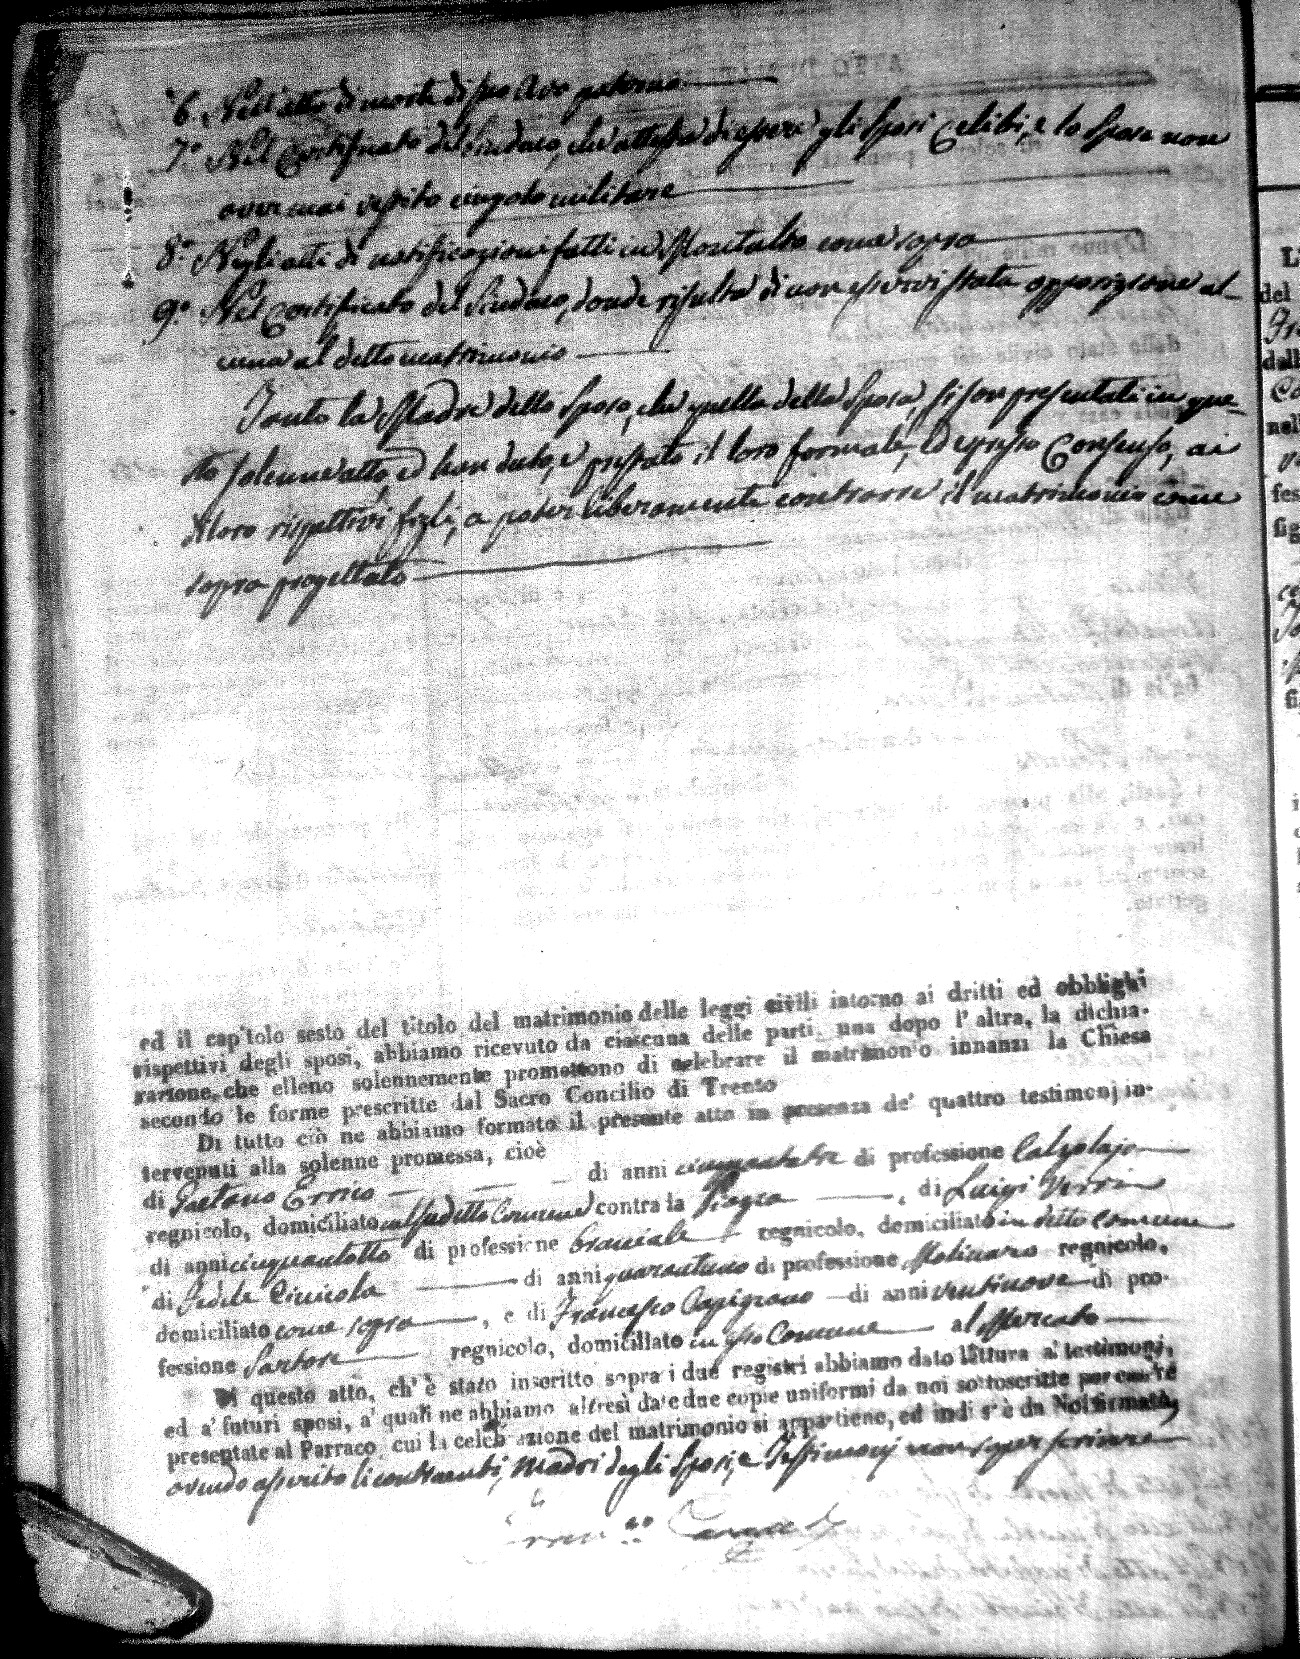 6. Nell'atto di morte di suo Avo paterno
7.° Nel Certificato del Sindaco, che attesta di essere gli Sposi Celibi, e lo Sposo non
aver mai vestito cingolo militare
8.° Negli atti di notificazioni fatti in Montalto come sopra
9.° Nel Certificato del Sindaco, donde risulta di non esservi stata opposizione al-
cuna al detto matrimonio
Tanto la Madre dello Sposo, che quella della Sposa, si son presentati in que-
sto solenne atto, ed han dato, e prestato il loro formale, ed espresso Consenso, ai
loro rispettivi figli, a poter liberamente contrarre il matrimonio come
sopra progettato
ed il capitolo sesto del titolo del matrimonio delle leggi civili intorno ai dritti ed obblighi
rispettivi degli sposi, abbiamo ricevuto da ciascuna delle parti, una dopo l'altra, la dichia-
razione, che elleno solennemente promettono di celebrare il matrimonio innanzi la Chiesa
secondo le forme prescritte dal Sacro Concilio di Trento
Di tutto ciò ne abbiamo formato il presente atto in presenza de' quattro testimonj in-
tervenuti alla solenne promessa, cioè
di Gaetano Errico di anni cinquantatre di professione Calzolajo
regnicolo, domiciliato nel sudetto Comune contra la , di Luigi
di anni cinquantotto di professione braciale regnicolo, domiciliato in detto comune
di di anni quarantuno di professione Molinaro regnicolo,
domiciliato come sopra , e di Francesco di anni ventinove di pro-
fessione Sartore regnicolo, domiciliato in esso Comune al Mercato
Di questo atto, ch'è stato inscritto sopra i due registri abbiamo dato lettura a' testimonj,
ed a' futuri sposi, a' quali ne abbiamo altresì date due copie uniformi da noi sottoscritte per essere
presentate al Parraco, cui la celebrazione del matrimonio si appartiene, ed indi s'è da Noi firmato,
avendo asserito li contraenti, madri degli Sposi, e Testimonj non saper scrivere